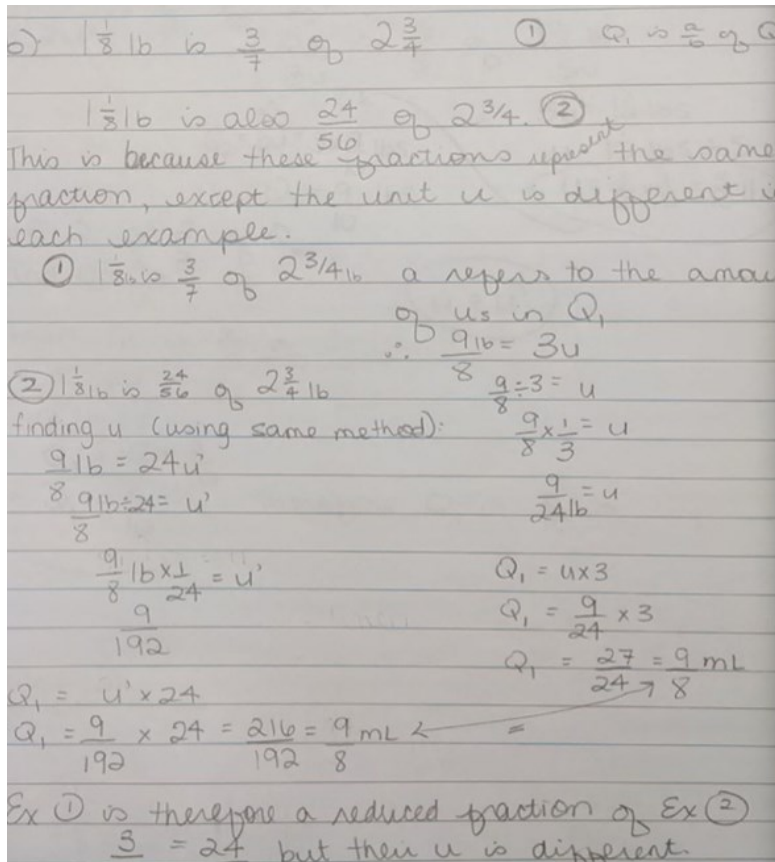 b) 1 1/8 lb is 3/7 of 2 3/4 ① Q₁ is a/b of Q
1 1/8 lb is also 24/56 of 2 3/4. ②
This is because these fractions represent the same
fraction, except the unit u is different i
each example.
① 1 1/8 lb is 3/7 of 2 3/4 lb a refers to the amou
of us in Q₁
∴ 9/8 lb = 3u
② 1 1/8 lb is 24/56 of 2 3/4 lb
9/8 ÷ 3 = u
finding u (using same method):
9/8 × 1/3 = u
9/8 lb = 24u'
9/24 lb = u
9/8 lb ÷ 24 = u'
9/8 lb × 1/24 = u'
Q₁ = u × 3
9/192
Q₁ = 9/24 × 3
Q₁ = 27/24 = 9/8 mL
Q₁ = u' × 24
Q₁ = 9/192 × 24 = 216/192 = 9/8 mL =
Ex ① is therefore a reduced fraction of Ex ②
3 = 24 but their u is different.